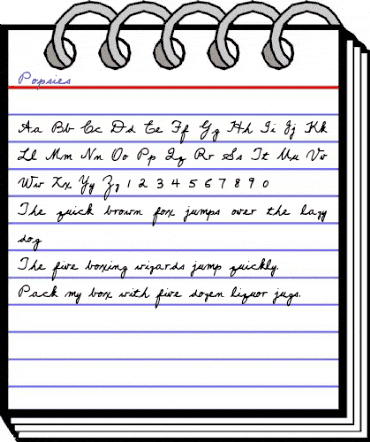 Popsies
Aa Bb Cc Dd Ee Ff Gg Hh Ii Jj Kk
Ll Mm Nn Oo Pp Qq Rr Ss Tt Uu Vv
Ww Xx Yy Zz 1 2 3 4 5 6 7 8 9 0
The quick brown fox jumps over the lazy
dog
The five boxing wizards jump quickly.
Pack my box with five dozen liquor jugs.